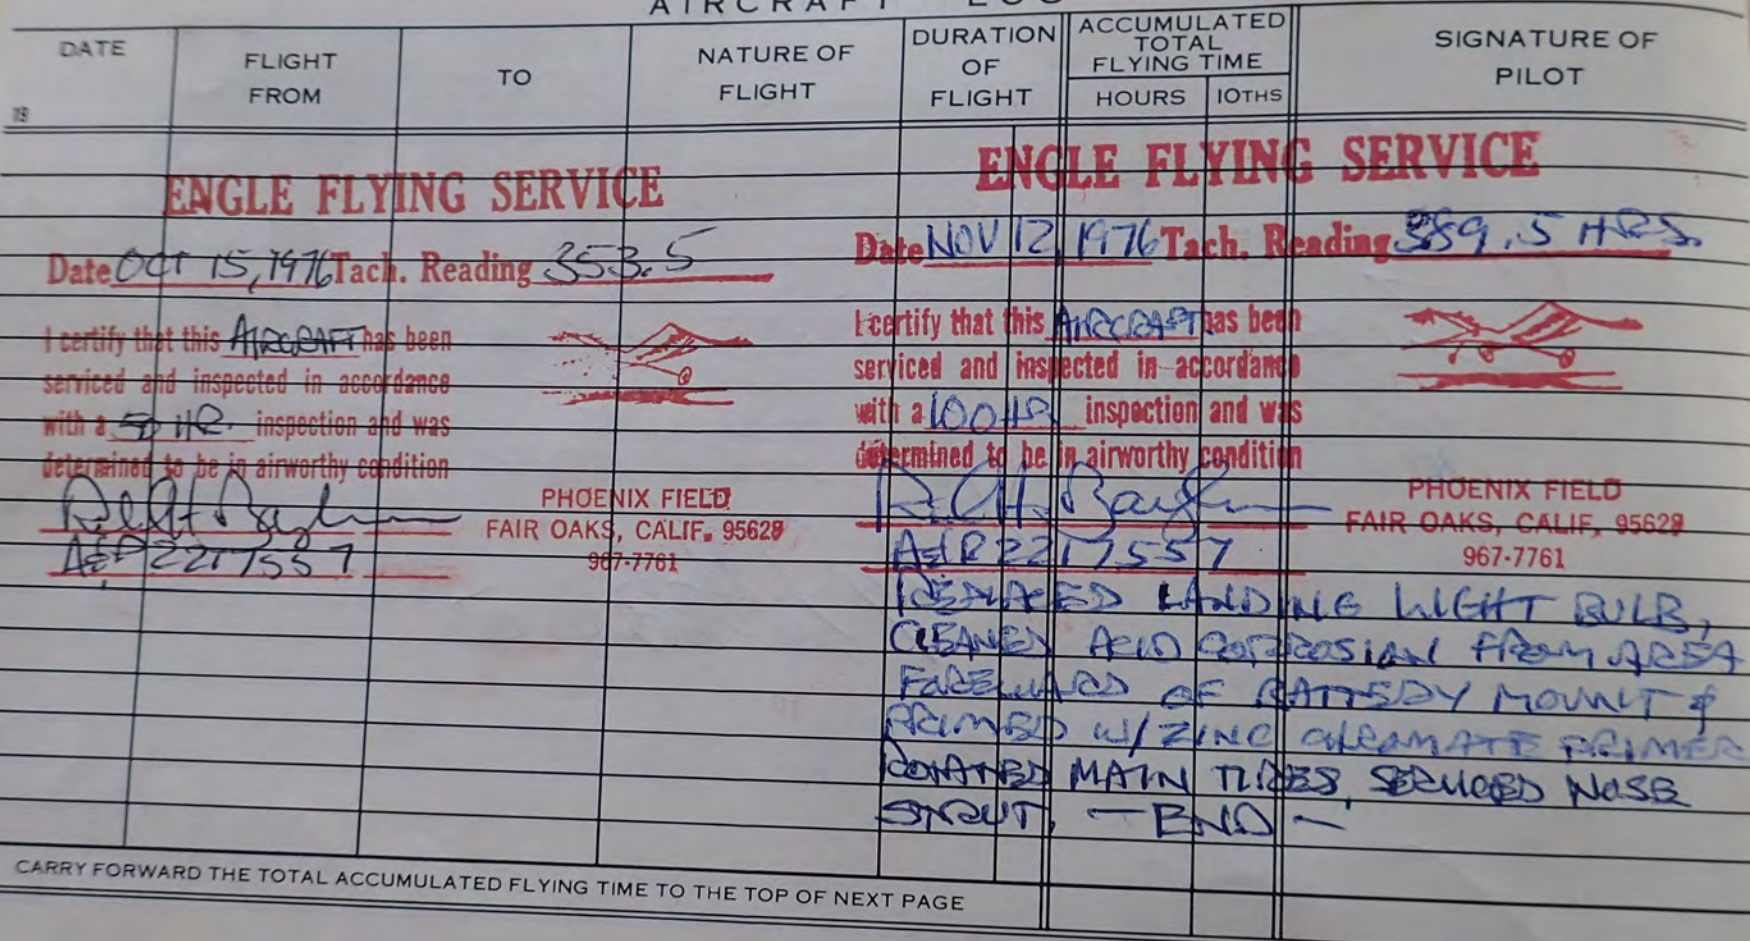 AIRCRAFT LOG
DATE
19
FLIGHT
FROM
TO
NATURE OF
FLIGHT
DURATION
OF
FLIGHT
ACCUMULATED
TOTAL
FLYING TIME
HOURS
10THS
SIGNATURE OF
PILOT
ENGLE FLYING SERVICE
Date OCT 15, 1976 Tach. Reading 353.5
I certify that this AIRCRAFT has been
serviced and inspected in accordance
with a 50 HR. inspection and was
determined to be in airworthy condition
A&P 2217557
PHOENIX FIELD
FAIR OAKS, CALIF. 95628
967-7761
ENGLE FLYING SERVICE
Date NOV 12, 1976 Tach. Reading 389.5 HRS.
I certify that this AIRCRAFT has been
serviced and inspected in accordance
with a 100 HR inspection and was
determined to be in airworthy condition
A&P 2217557
PHOENIX FIELD
FAIR OAKS, CALIF. 95628
967-7761
REPLACED LANDING LIGHT BULB,
CLEANED ACID CORROSION FROM AREA
FOREWARD OF BATTERY MOUNT &
PRIMED W/ZINC CHROMATE PRIMER
ROTATED MAIN TIRES, SERVICED NOSE
STRUT. - END -
CARRY FORWARD THE TOTAL ACCUMULATED FLYING TIME TO THE TOP OF NEXT PAGE